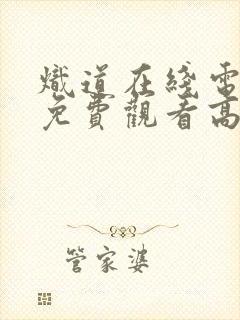 熾道在綫電
免費觀看高
管家婆